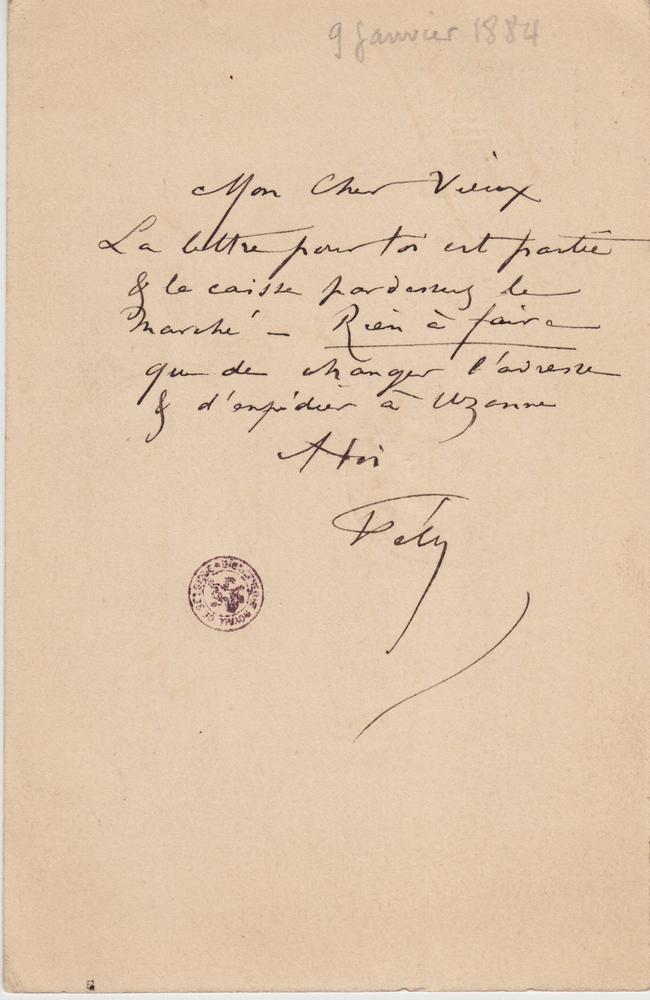 9 Janvier 1884
Mon Cher Vieux
La lettre pour toi est partie
& la caisse pardessus le
marché – Rien à faire
que de changer l'adresse
& d'expédier à Uzanne
A toi
Fély
BIBLIOTHÈQUE ROYALE DE BELGIQUE